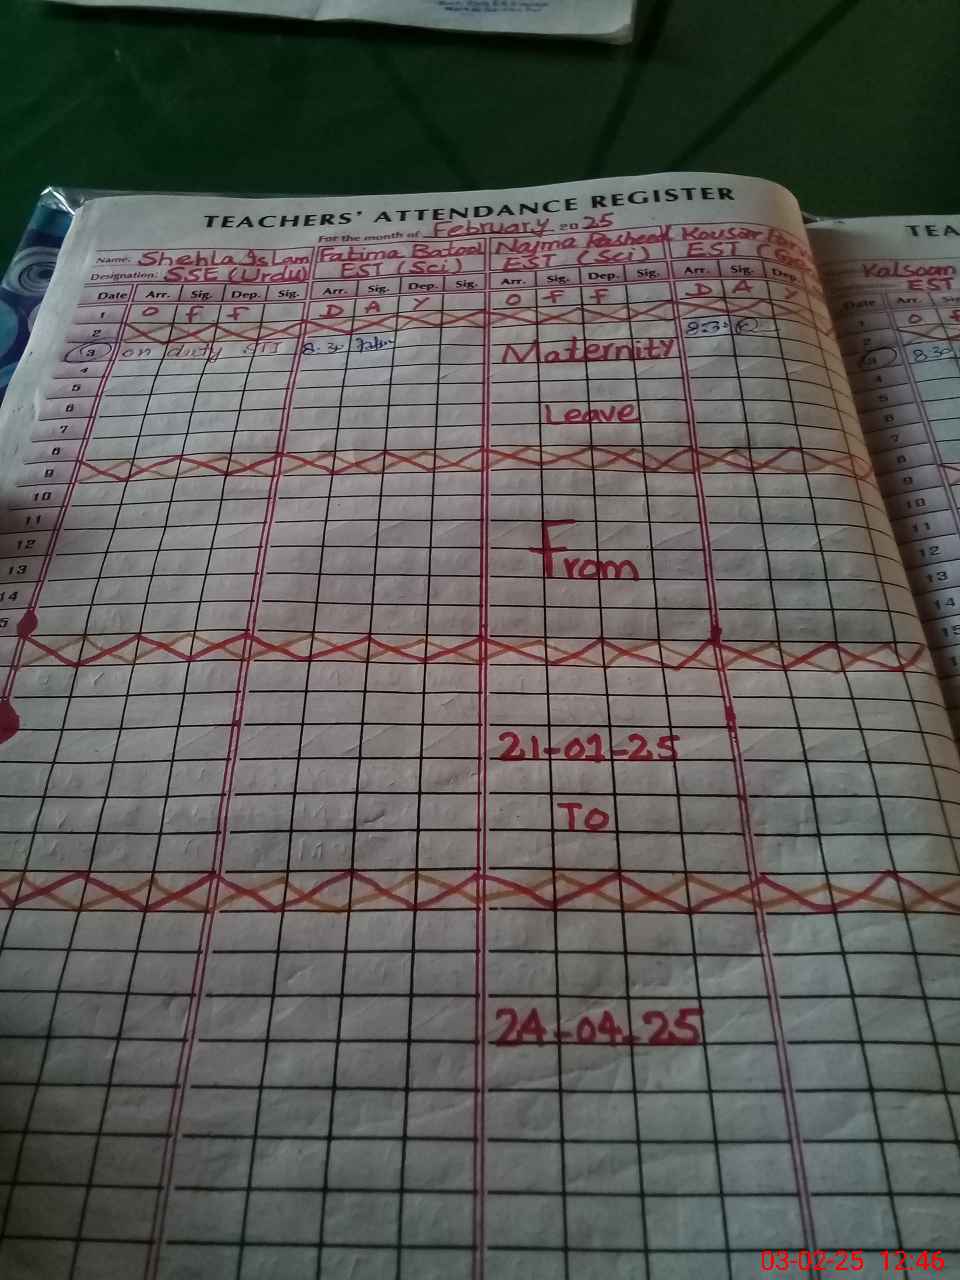 TEACHERS' ATTENDANCE REGISTER
For the month of February 2025
Name: Shehla Islam Fatima Batool Najma Rasheed Kousar
Designation: SSE (Urdu) EST (Sci) EST (Sci) EST
Date Arr. Sig. Dep. Sig. Arr. Sig. Dep. Sig. Arr. Sig. Dep. Sig. Arr. Sig. Dep.
1 O f f D A Y O f f D A Y
2
3 on duty 8:30 Maternity 8:30
4
5
6 Leave
7
8
9
10
11
12
13 From
14
5
21-01-25
To
24-04-25
TEA
Kalsoom
EST
Date Arr.
1 O f
2
3 8:30
4
5
6
7
8
9
10
11
12
13
14
15
03-02-25 12:46